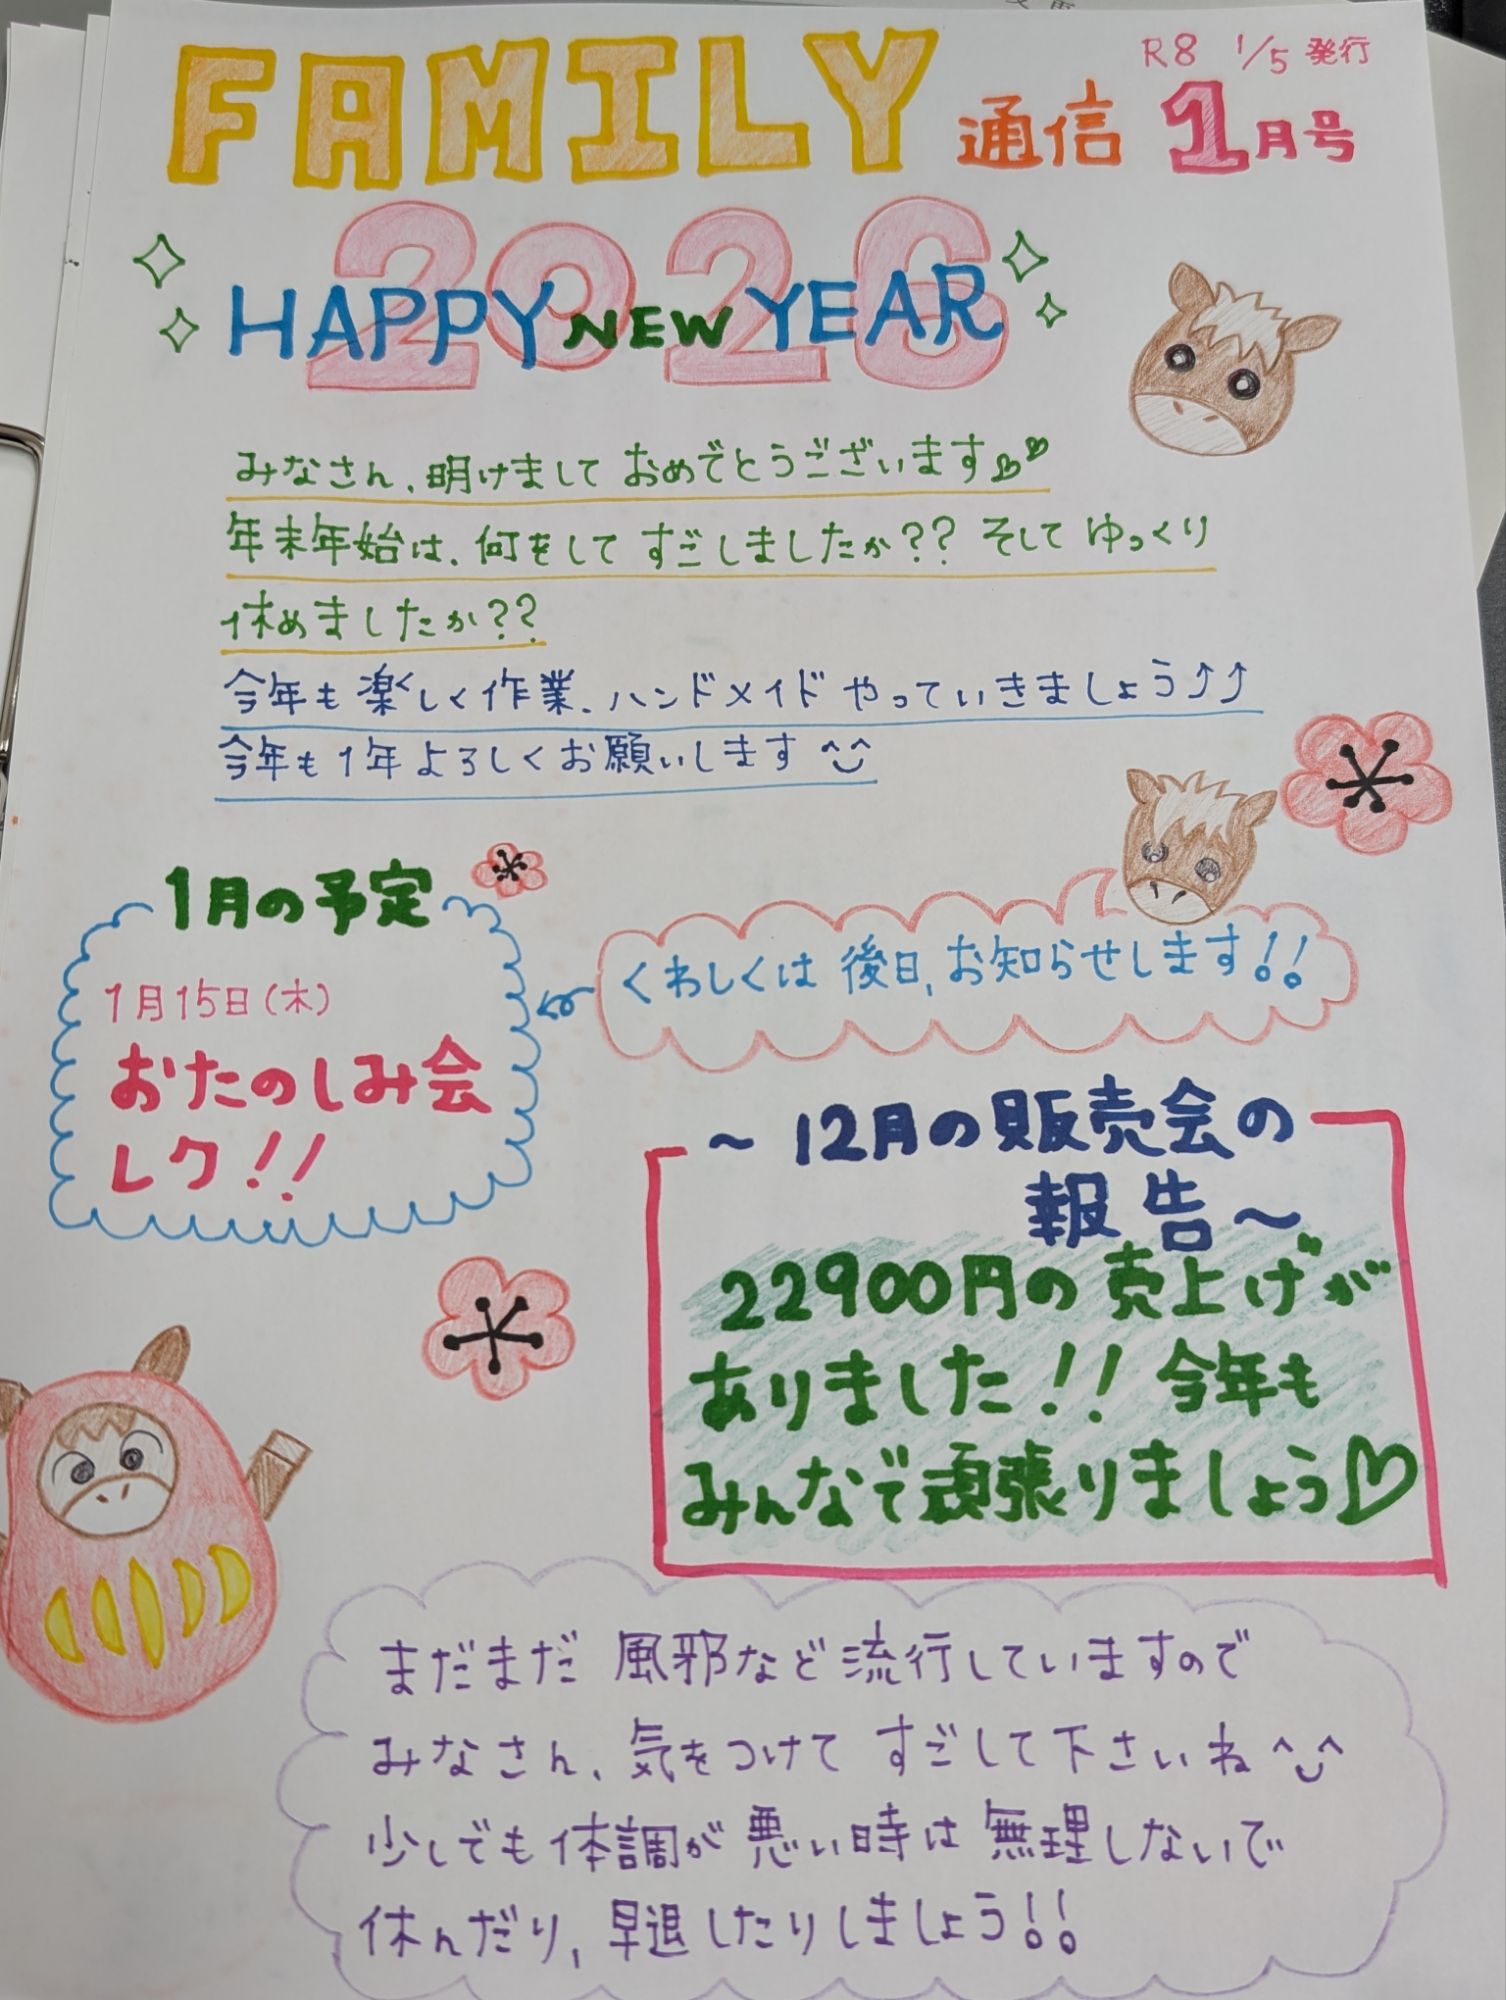 FAMILY 通信 1月号
R8 1/5 発行
2026
HAPPY NEW YEAR
みなさん、明けまして おめでとうございます
年末年始は、何をして すごしましたか?? そして ゆっくり
休めましたか??
今年も楽しく作業、ハンドメイド やっていきましょう↑↑
今年も1年よろしくお願いします^^
1月の予定
1月15日(木)
おたのしみ会
レク!!
くわしくは 後日、お知らせします!!
~12月の販売会の
報告~
22900円の売上げが
ありました!! 今年も
みんなで頑張りましょう♡
まだまだ 風邪など流行していますので
みなさん、気をつけて すごして下さいね^^
少しでも体調が悪い時は無理しないで
休んだり、早退したりしましょう!!